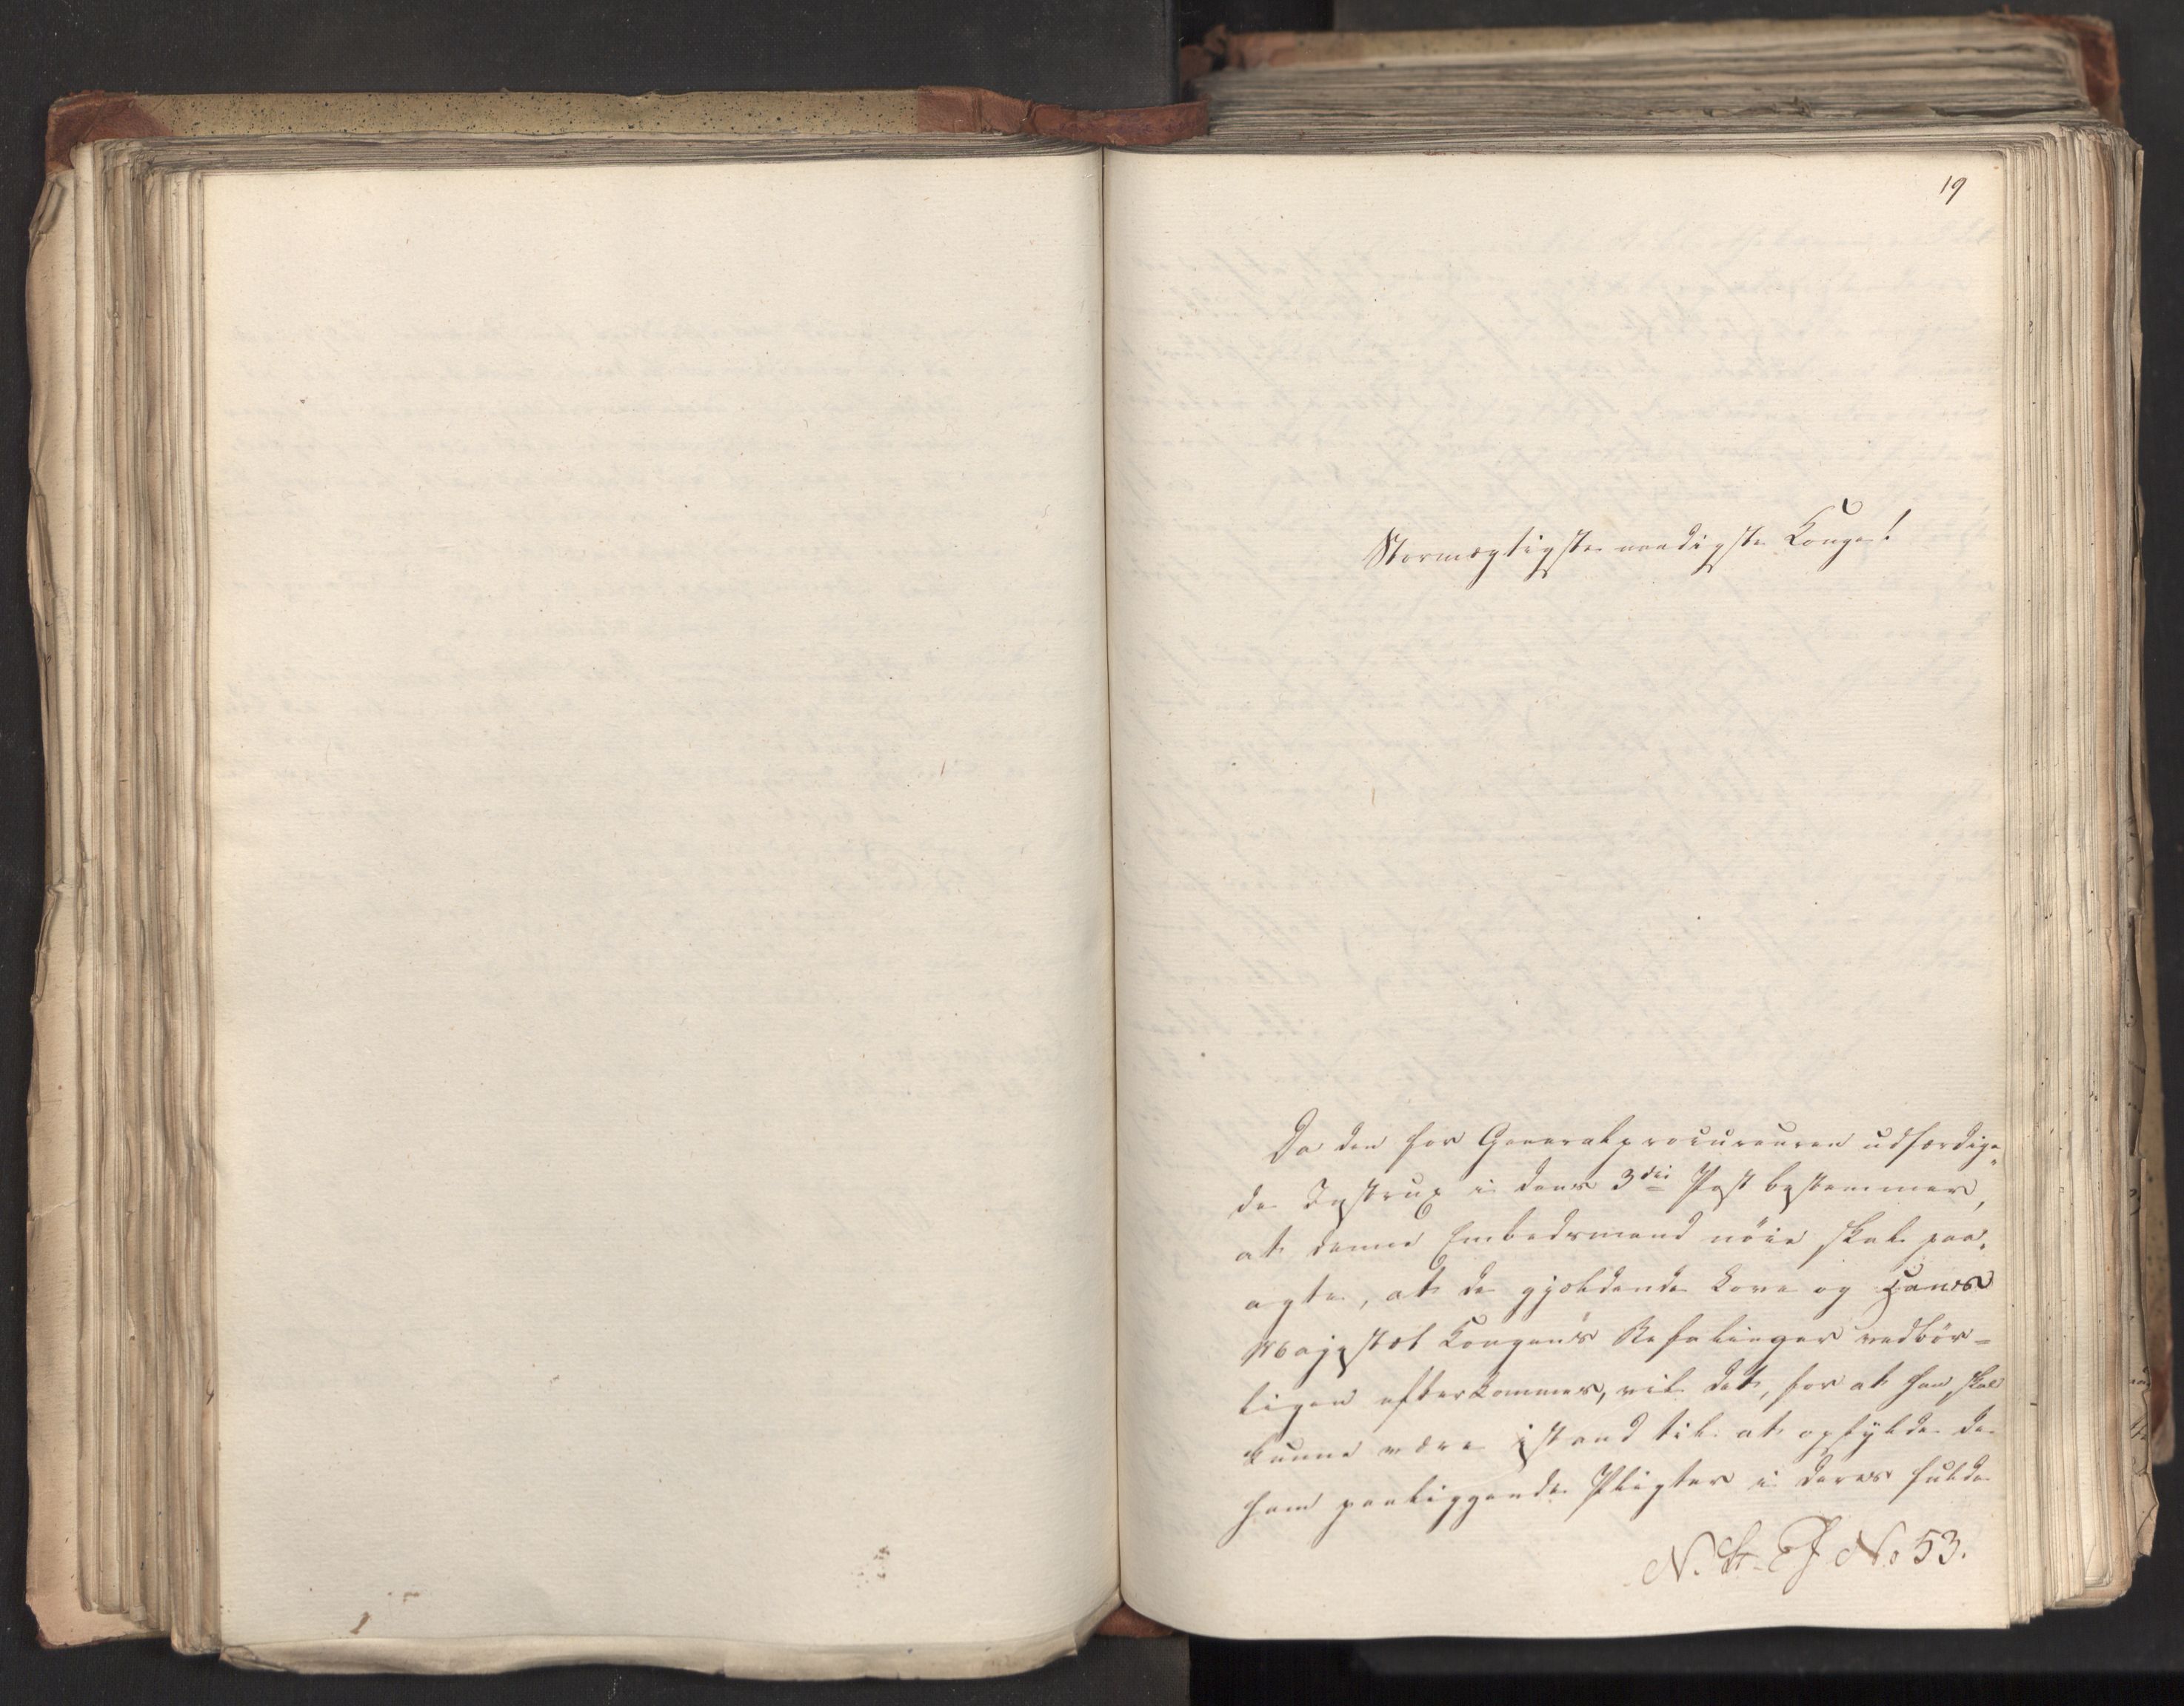 19
Stormægtigste naadigste Konge!
Da den for Generalprocureuren udfærdige-
de Instrux i dens 3die Post bestemmer,
at denne Embedsmand nöie skal paa-
agte, at de gjældende Love og Hans
Majestæt Kongens Befalinger vedbör-
ligen efterkommes, vil det, for at han skal
kunne være istand til at opfylde de
ham paaliggende Pligter i deres fulde
N. St. J No 53.